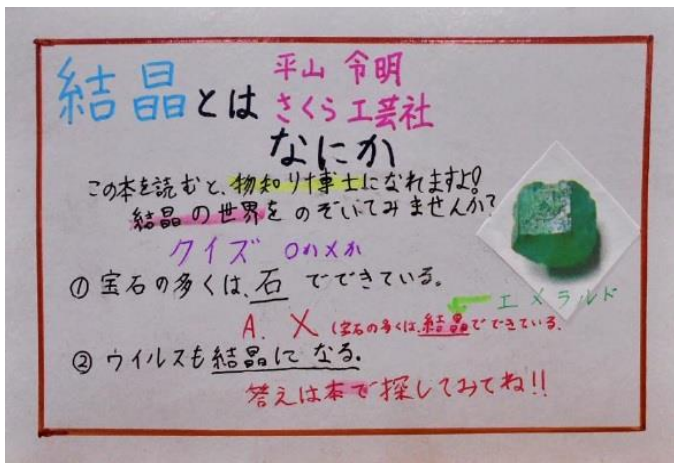 平山 令明
さくら工芸社
結晶とは
なにか
この本を読むと、物知り博士になれますよ!
結晶の世界をのぞいてみませんか?
クイズ ○か×か
① 宝石の多くは、石 でできている。
エメラルド
A. × (宝石の多くは、結晶でできている。
② ウイルスも結晶に なる。
答えは本で探してみてね!!